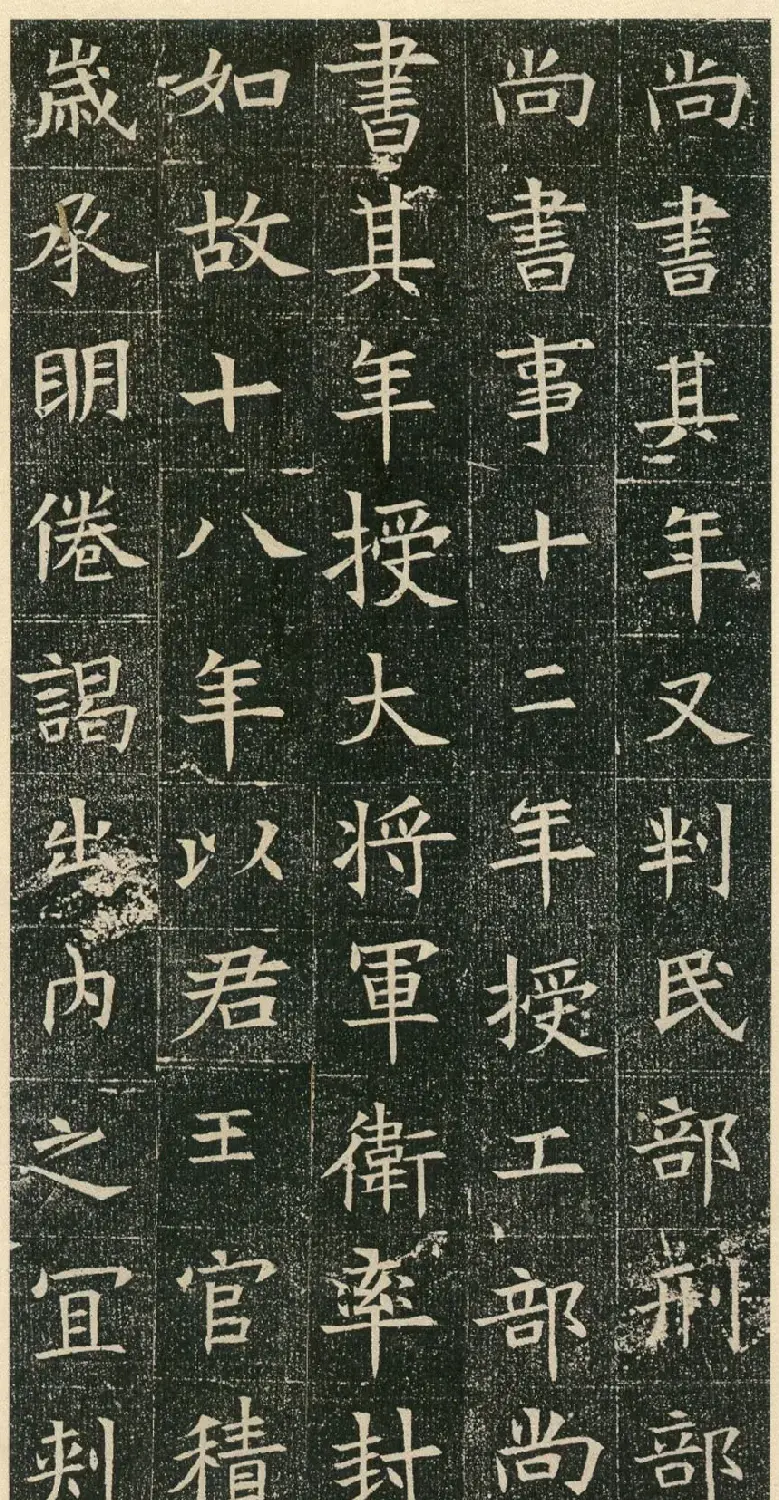 尚書其年又判民部刑部
尚書事十二年授工部尚
書其年授大将軍衛率封
如故十八年以君王官積
歳承明倦謁出内之宜刺